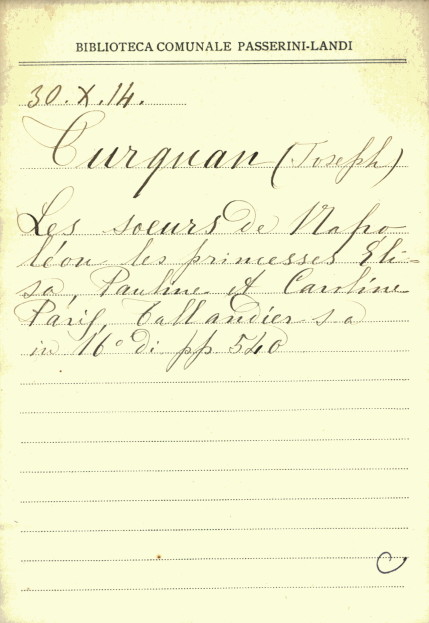 BIBLIOTECA COMUNALE PASSERINI-LANDI
30.X.14.
Turquan (Joseph)
Les soeurs de Napo
léon les princesses Eli-
sa, Pauline et Caroline
Paris, Tallandier s a
in 16° di pp 540
C